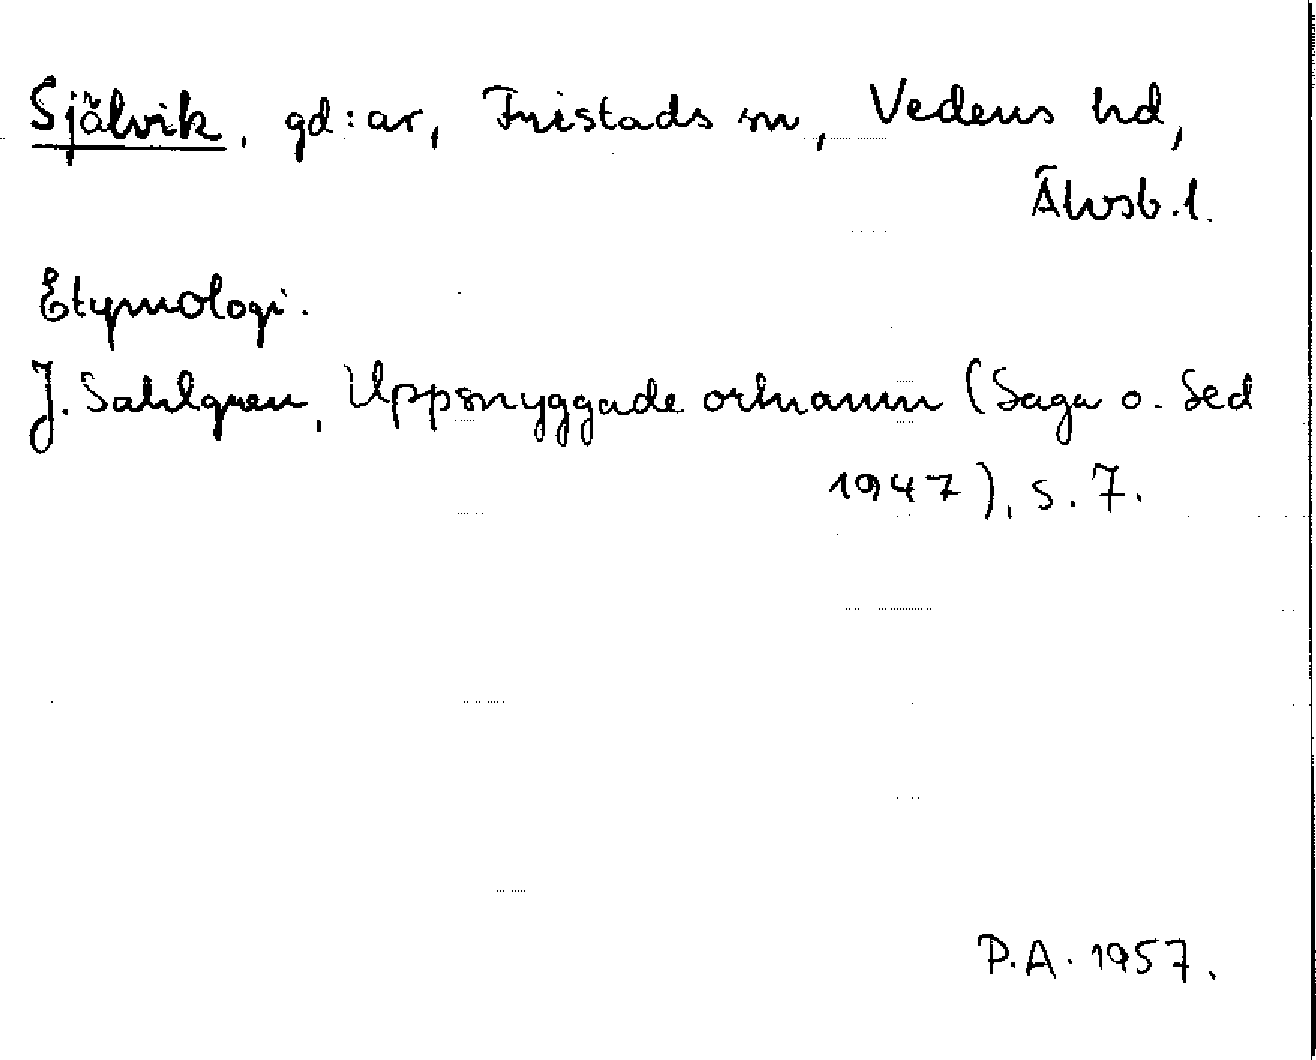 Självik, gd:ar, Fristads sn, Vedens hd,
Älvsb.l.
Etymologi.
J. Sahlgren, Uppsnyggade ortnamn (Saga o. Sed
1947), s. 7.
P.A. 1957.